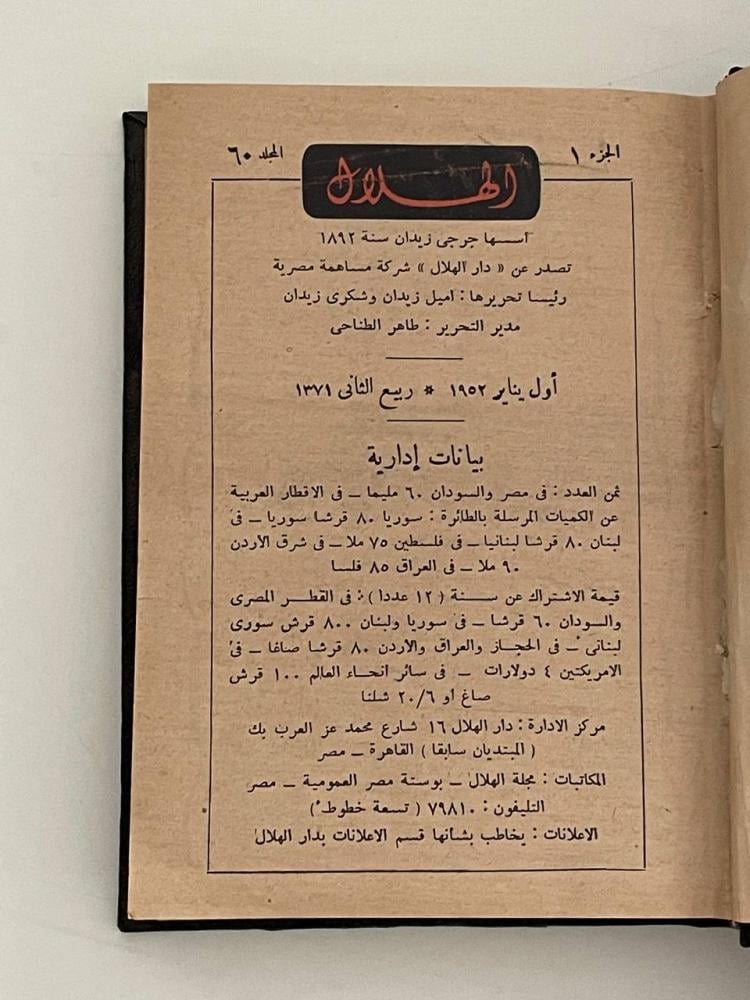 الجزء ١
الهلال
المجلد ٦٠
أسسها جرجى زيدان سنة ١٨٩٢
تصدر عن « دار الهلال » شركة مساهمة مصرية
رئيسا تحريرها : اميل زيدان وشكرى زيدان
مدير التحرير : طاهر الطناحى
أول يناير ١٩٥٢ * ربيع الثانى ١٣٧١
بيانات إدارية
ثمن العدد : فى مصر والسودان ٦٠ مليما ــ فى الاقطار العربية
عن الكميات المرسلة بالطائرة : سوريا ٨٠ قرشا سوريا ــ فى
لبنان ٨٠ قرشا لبنانيا ــ فى فلسطين ٧٥ ملا ــ فى شرق الأردن
٩٠ ملا ــ فى العراق ٨٥ فلسا
قيمة الاشتراك عن سنة ( ١٢ عددا ) : فى القطر المصرى
والسودان ٦٠ قرشا ــ فى سوريا ولبنان ٨٠٠ قرش سورى
لبنانى ــ فى الحجاز والعراق والأردن ٨٠ قرشا صاغا ــ فى
الامريكتين ٤ دولارات ــ فى سائر انحاء العالم ١٠٠ قرش
صاغ أو ٢٠/٦ شلنا
مركز الادارة : دار الهلال ١٦ شارع محمد عز العرب بك
( المبتديان سابقا ) القاهرة ــ مصر
المكاتبات : مجلة الهلال ــ بوستة مصر العمومية ــ مصر
التليفون : ٧٩٨١٠ ( تسعة خطوط )
الاعلانات : يخاطب بشأنها قسم الاعلانات بدار الهلال